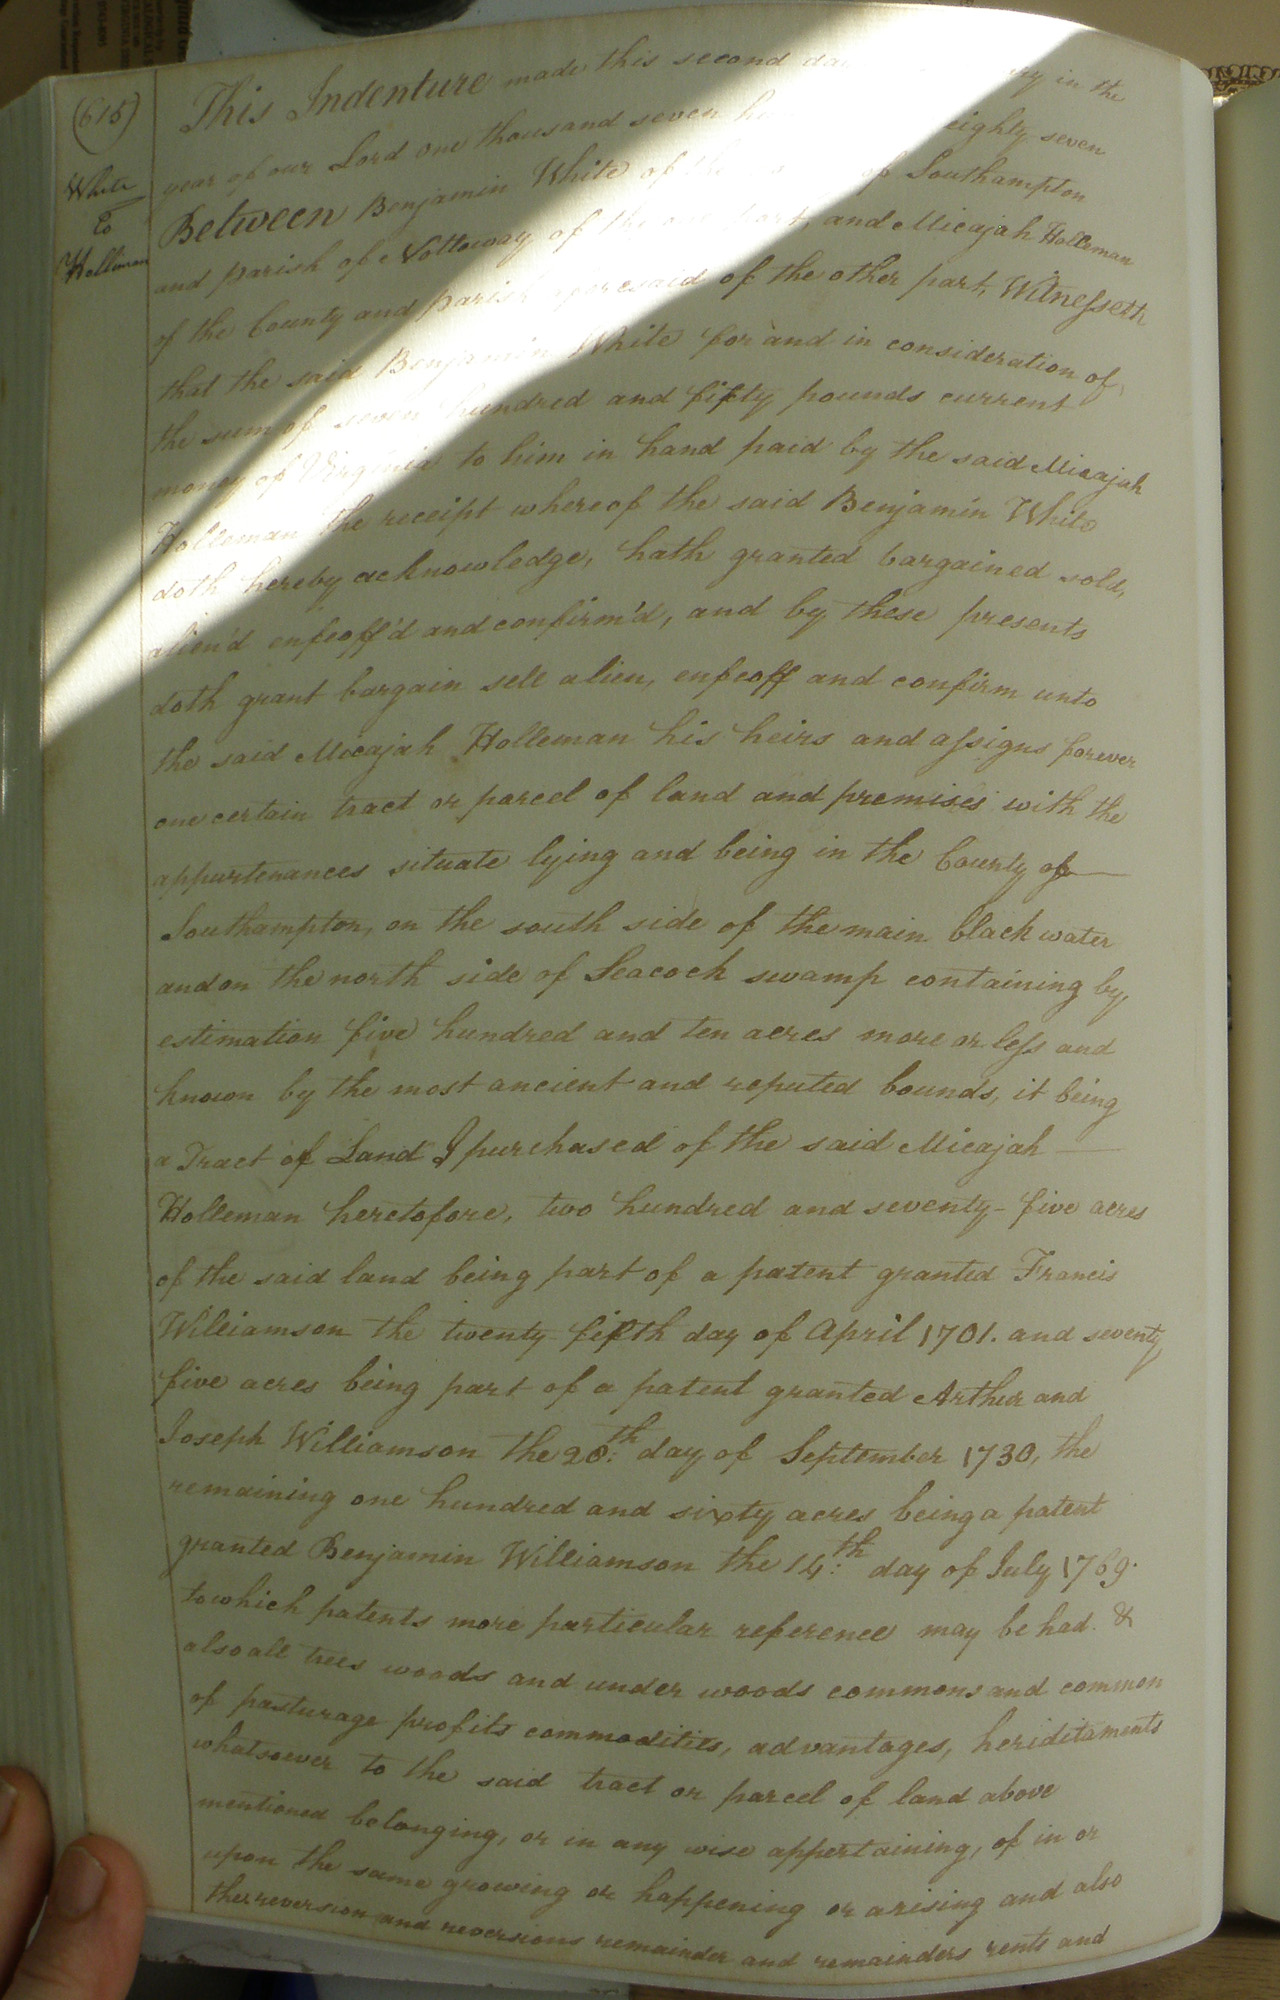 (615)
White
to
Holliman
This Indenture made this second day in the
year of our Lord one thousand seven eighty seven
Between Benjamin White of the of Southampton
and parish of Nottoway of the one part, and Micajah Holleman
of the County and parish aforesaid of the other part, Witnesseth
that the said Benjamin White for and in consideration of
the sum of seven hundred and fifty pounds current
money of Virginia to him in hand paid by the said Micajah
Holleman the receipt whereof the said Benjamin White
doth hereby acknowledge, hath granted bargained sold,
alien'd enfeoff'd and confirm'd, and by these presents
doth grant bargain sell alien, enfeoff and confirm unto
the said Micajah Holleman his heirs and assigns forever
one certain tract or parcel of land and premises with the
appurtenances situate lying and being in the County of
Southampton, on the south side of the main black water
and on the north side of Seacock swamp containing by
estimation five hundred and ten acres more or less and
known by the most ancient and reputed bounds, it being
a Tract of Land I purchased of the said Micajah
Holleman heretofore, two hundred and seventy-five acres
of the said land being part of a patent granted Francis
Williamson the twenty fifth day of April 1701. and seventy
five acres being part of a patent granted Arthur and
Joseph Williamson the 28th day of September 1730, the
remaining one hundred and sixty acres being a patent
granted Benjamin Williamson the 14th day of July 1769.
to which patents more particular reference may be had. &
also all trees woods and under woods commons and common
of pasturage profits commodities, advantages, heriditaments
whatsoever to the said tract or parcel of land above
mentioned belonging, or in any wise appertaining, of in or
upon the same growing or happening or arising and also
the reversion and reversions remainder and remainders rents and